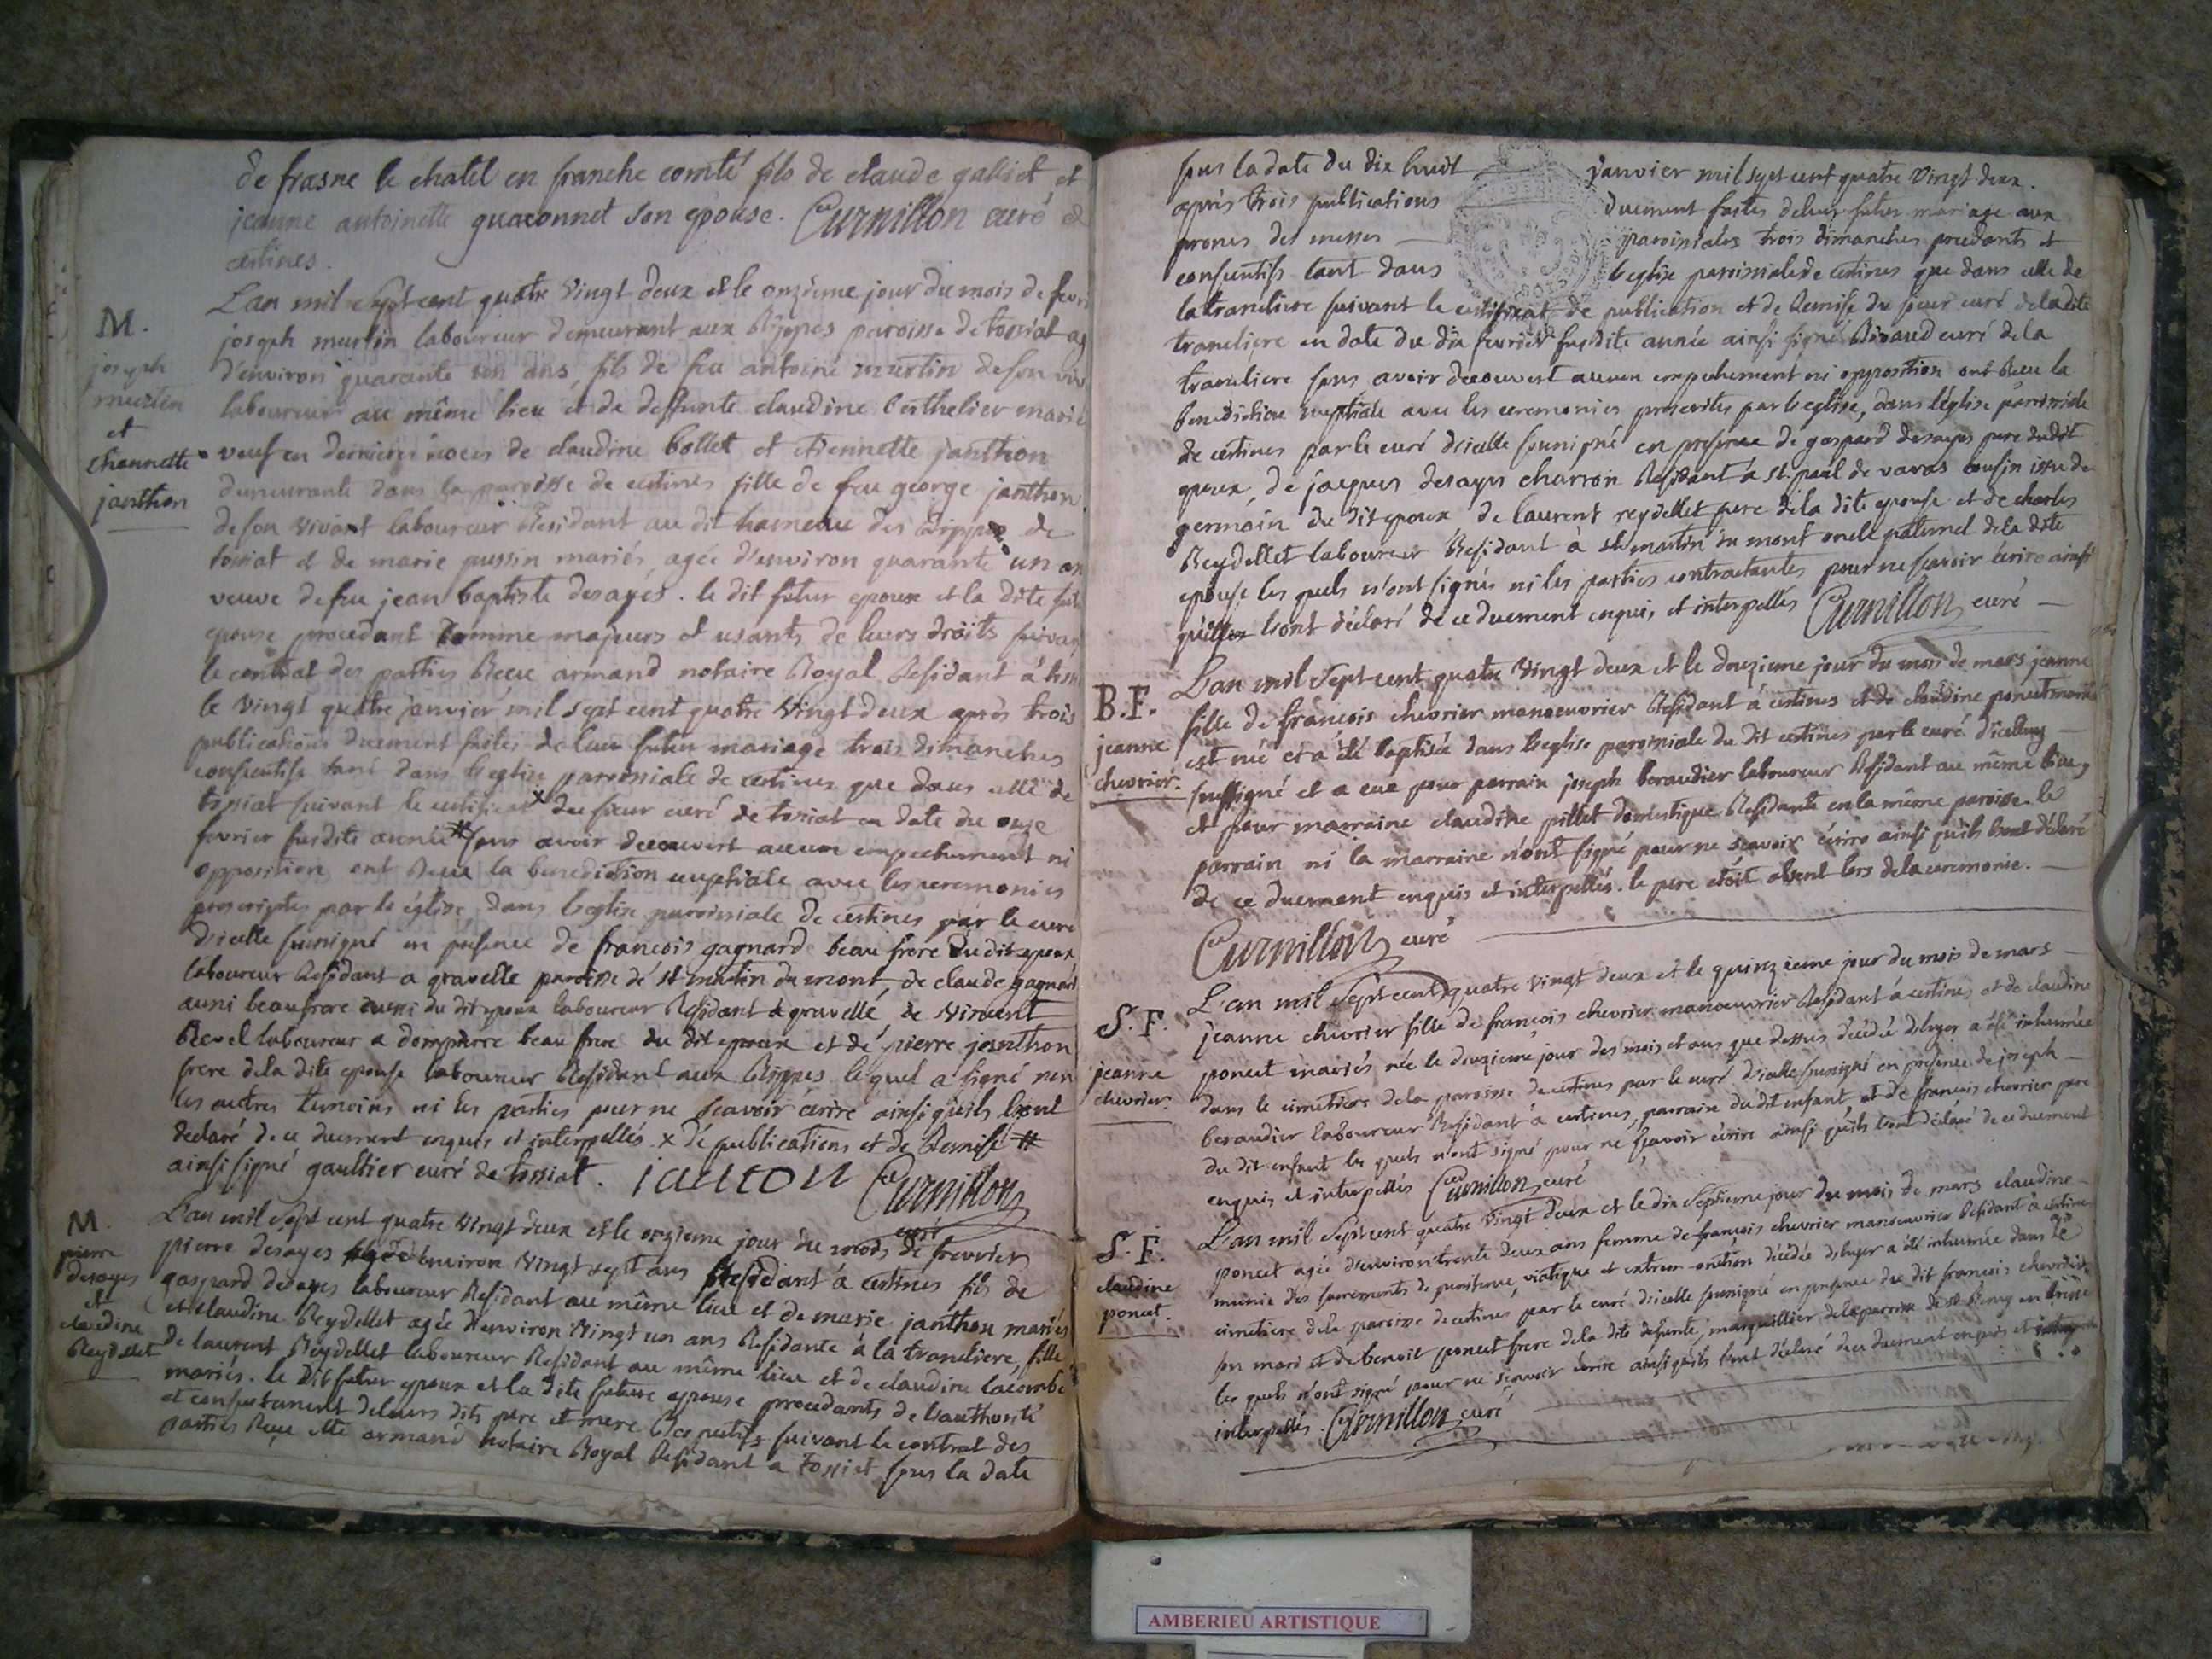 de frasne le chatel en franche comté fils de claude galiet et
jeanne antoinette guaconnet son epouse. Curnillon curé de
certines.
M.
joseph
murtin
et
etiennette
janthon
L'an mil sept cent quatre vingt deux et le onzieme jour du mois de fevri
joseph murtin laboureur demeurant aux Rippes paroisse de tossiat ag
d'environ quarante ans, fils de feu antoine murtin de son viv
laboureur au même lieu et de deffunte claudine berthelier mariés
veuf en dernieres noces de claudine bollet et etiennette janthon
demeurante dans la paroisse de certines fille de feu george janthon
de son vivant laboureur Residant au dit hameau des Rippes de
tossiat et de marie pussin mariés, agée d'environ quarante un an
veuve de feu jean baptiste desayes. le dit futur epoux et la dite fut
epouse procedant comme majeurs et usants de leurs droits suivan
le contrat des parties Receu armand notaire Royal Residant à toss
le vingt quatre janvier mil sept cent quatre vingt deux après trois
publications duement faites de leur futur mariage trois dimanches
consecutifs tant dans l'eglise paroissiale de certines que dans celle de
tossiat suivant le certificat x du sieur curé de tossiat en date du onze
fevrier susdite année # sans avoir decouvert aucun empechement ni
opposition ont Receu la benediction nuptiale avec les ceremonies
prescriptes par le église, dans l'eglise paroissiale de certines par le curé
d'icelle soussigné en presence de francois gagnard beau frere du dit epoux
laboureur Residant a gravelle paroisse de st martin du mont, de claude gagnard
aussi beaufrere du dit epoux laboureur Residant a gravelle, de vincent
Revel laboureur a dompierre beau frere du dit epoux et de pierre janthon
frere de la dite epouse laboureur Residant aux Rippes lequel a signé non
les autres temoins ni les parties pour ne scavoir écrire ainsi qu'ils l'ont
declaré de ce duement enquis et interpellés. x de publications et de Remise #
ainsi signé gaultier curé de tossiat. janton Curnillon
curé
M.
pierre
desayes
et
claudine
Reydellet
L'an mil sept cent quatre vingt deux et le onzieme jour du mois de frevrier
pierre desayes agé d'environ vingt sept ans Residant à certines fils de
gaspard desayes laboureur Residant au même lieu et de marie janthon mariés
et claudine Reydellet agée d'environ vingt un ans Residante à la trancliere, fille
de laurent Reydellet laboureur Residant au même lieu et de claudine lacombe
mariés. le dit futur epoux et la dite future epouse procedants de l'authorité
et consentement de leurs dits pere et mere Respectifs suivant le contrat des
parties Reçu Me armand notaire Royal Residant a tossiat sous la date
sous la date du dix huit janvier mil sept cent quatre vingt deux.
après trois publications duement faites de leur futur mariage aux
prones des messes paroissiales trois dimanches precedants et
consecutifs tant dans l'eglise paroissiale de certines que dans celle de
la trancliere suivant le certificat de publication et de Remise du sieur curé de la dite
trancliere en date du dix fevrier susdite année ainsi signé curé de la
trancliere sans avoir decouvert aucun empechement ni opposition ont Receu la
benediction nuptiale avec les ceremonies prescrites par l'eglise, dans l'église paroissiale
de certines par le curé d'icelle soussigné en presence de gaspard desayes pere du dit
epoux, de jacques desayes charron Residant à st. paul de varas cousin issu de
germain du dit epoux de laurent reydellet pere de la dite epouse et de charles
Reydellet laboureur Residant à st martin du mont oncle paternel de la dite
epouse les quels n'ont signés ni les parties contractantes pour ne scavoir écrire ainsi
qu'ils l'ont déclaré de ce duement enquis et interpellés Curnillon curé
B.F.
jeanne
chevrier.
L'an mil sept cent quatre vingt deux et le douzieme jour du mois de mars jeanne
fille de françois chevrier manoeuvrier Residant à certines et de claudine poncet mariés
est née et a été baptisée dans l'eglise paroissiale du dit certines par le curé d'icelluy
soussigné et a eue pour parrain joseph beraudier laboureur Residant au même lieu,
et pour marraine claudine pillet domestique Residante en la même paroisse. le
parrain ni la marraine n'ont signé pour ne scavoir écrire ainsi qu'ils l'ont déclaré
de ce duement enquis et interpellés. le pere étoit absent lors de la ceremonie.
Curnillon curé
S.F.
jeanne
chevrier.
L'an mil sept cent quatre vingt deux et le quinzieme jour du mois de mars
jeanne chevrier fille de françois chevrier manoeuvrier Residant à certines et de claudine
poncet mariés née le douzieme jour des mois et ans que dessus décédée d'hyer a été inhumée
dans le cimetiere de la paroisse de certines par le curé d'icelle soussigné en presence de joseph
beraudier laboureur Residant à certines, parrain du dit enfant et de françois chevrier pere
du dit enfant les quels n'ont signé pour ne sçavoir écrire ainsi qu'ils l'ont déclaré de ce duement
enquis et interpellés Curnillon curé
S.F.
claudine
poncet.
L'an mil sept cent quatre vingt deux et le dix septieme jour du mois de mars claudine
poncet agée d'environ trente deux ans femme de françois chevrier manoeuvrier Residant à certines
munie des sacrements de penitence, viatique et extrem-onction décédée d'hyer a été inhumée dans le
cimetiere de la paroisse de certines par le curé d'icelle soussigné en presence du dit françois chevrier
son mari et de benoit poncet frere de la dite defunte, marguillier de la paroisse de st Remy en Bresse
les quels n'ont signé pour ne scavoir écrire ainsi qu'ils l'ont déclaré de ce duement enquis et
interpellés. Curnillon curé
AMBERIEU ARTISTIQUE